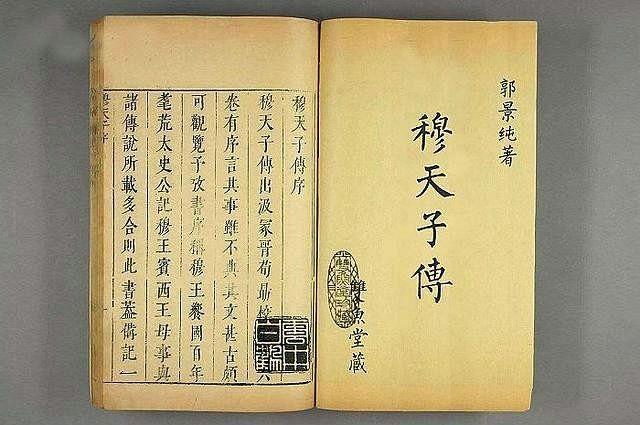 郭景純著
穆天子傳
雙魚堂藏
穆天子傳序
穆天子傳出汲冢晉荀勗校 六
卷有序言其事雖不典其文甚古頗
可觀覽予攷書序稱穆王饗國百年
耄荒太史公記穆王賓西王母事與
諸傳說所載多合則此書葢備記一
穆天子序